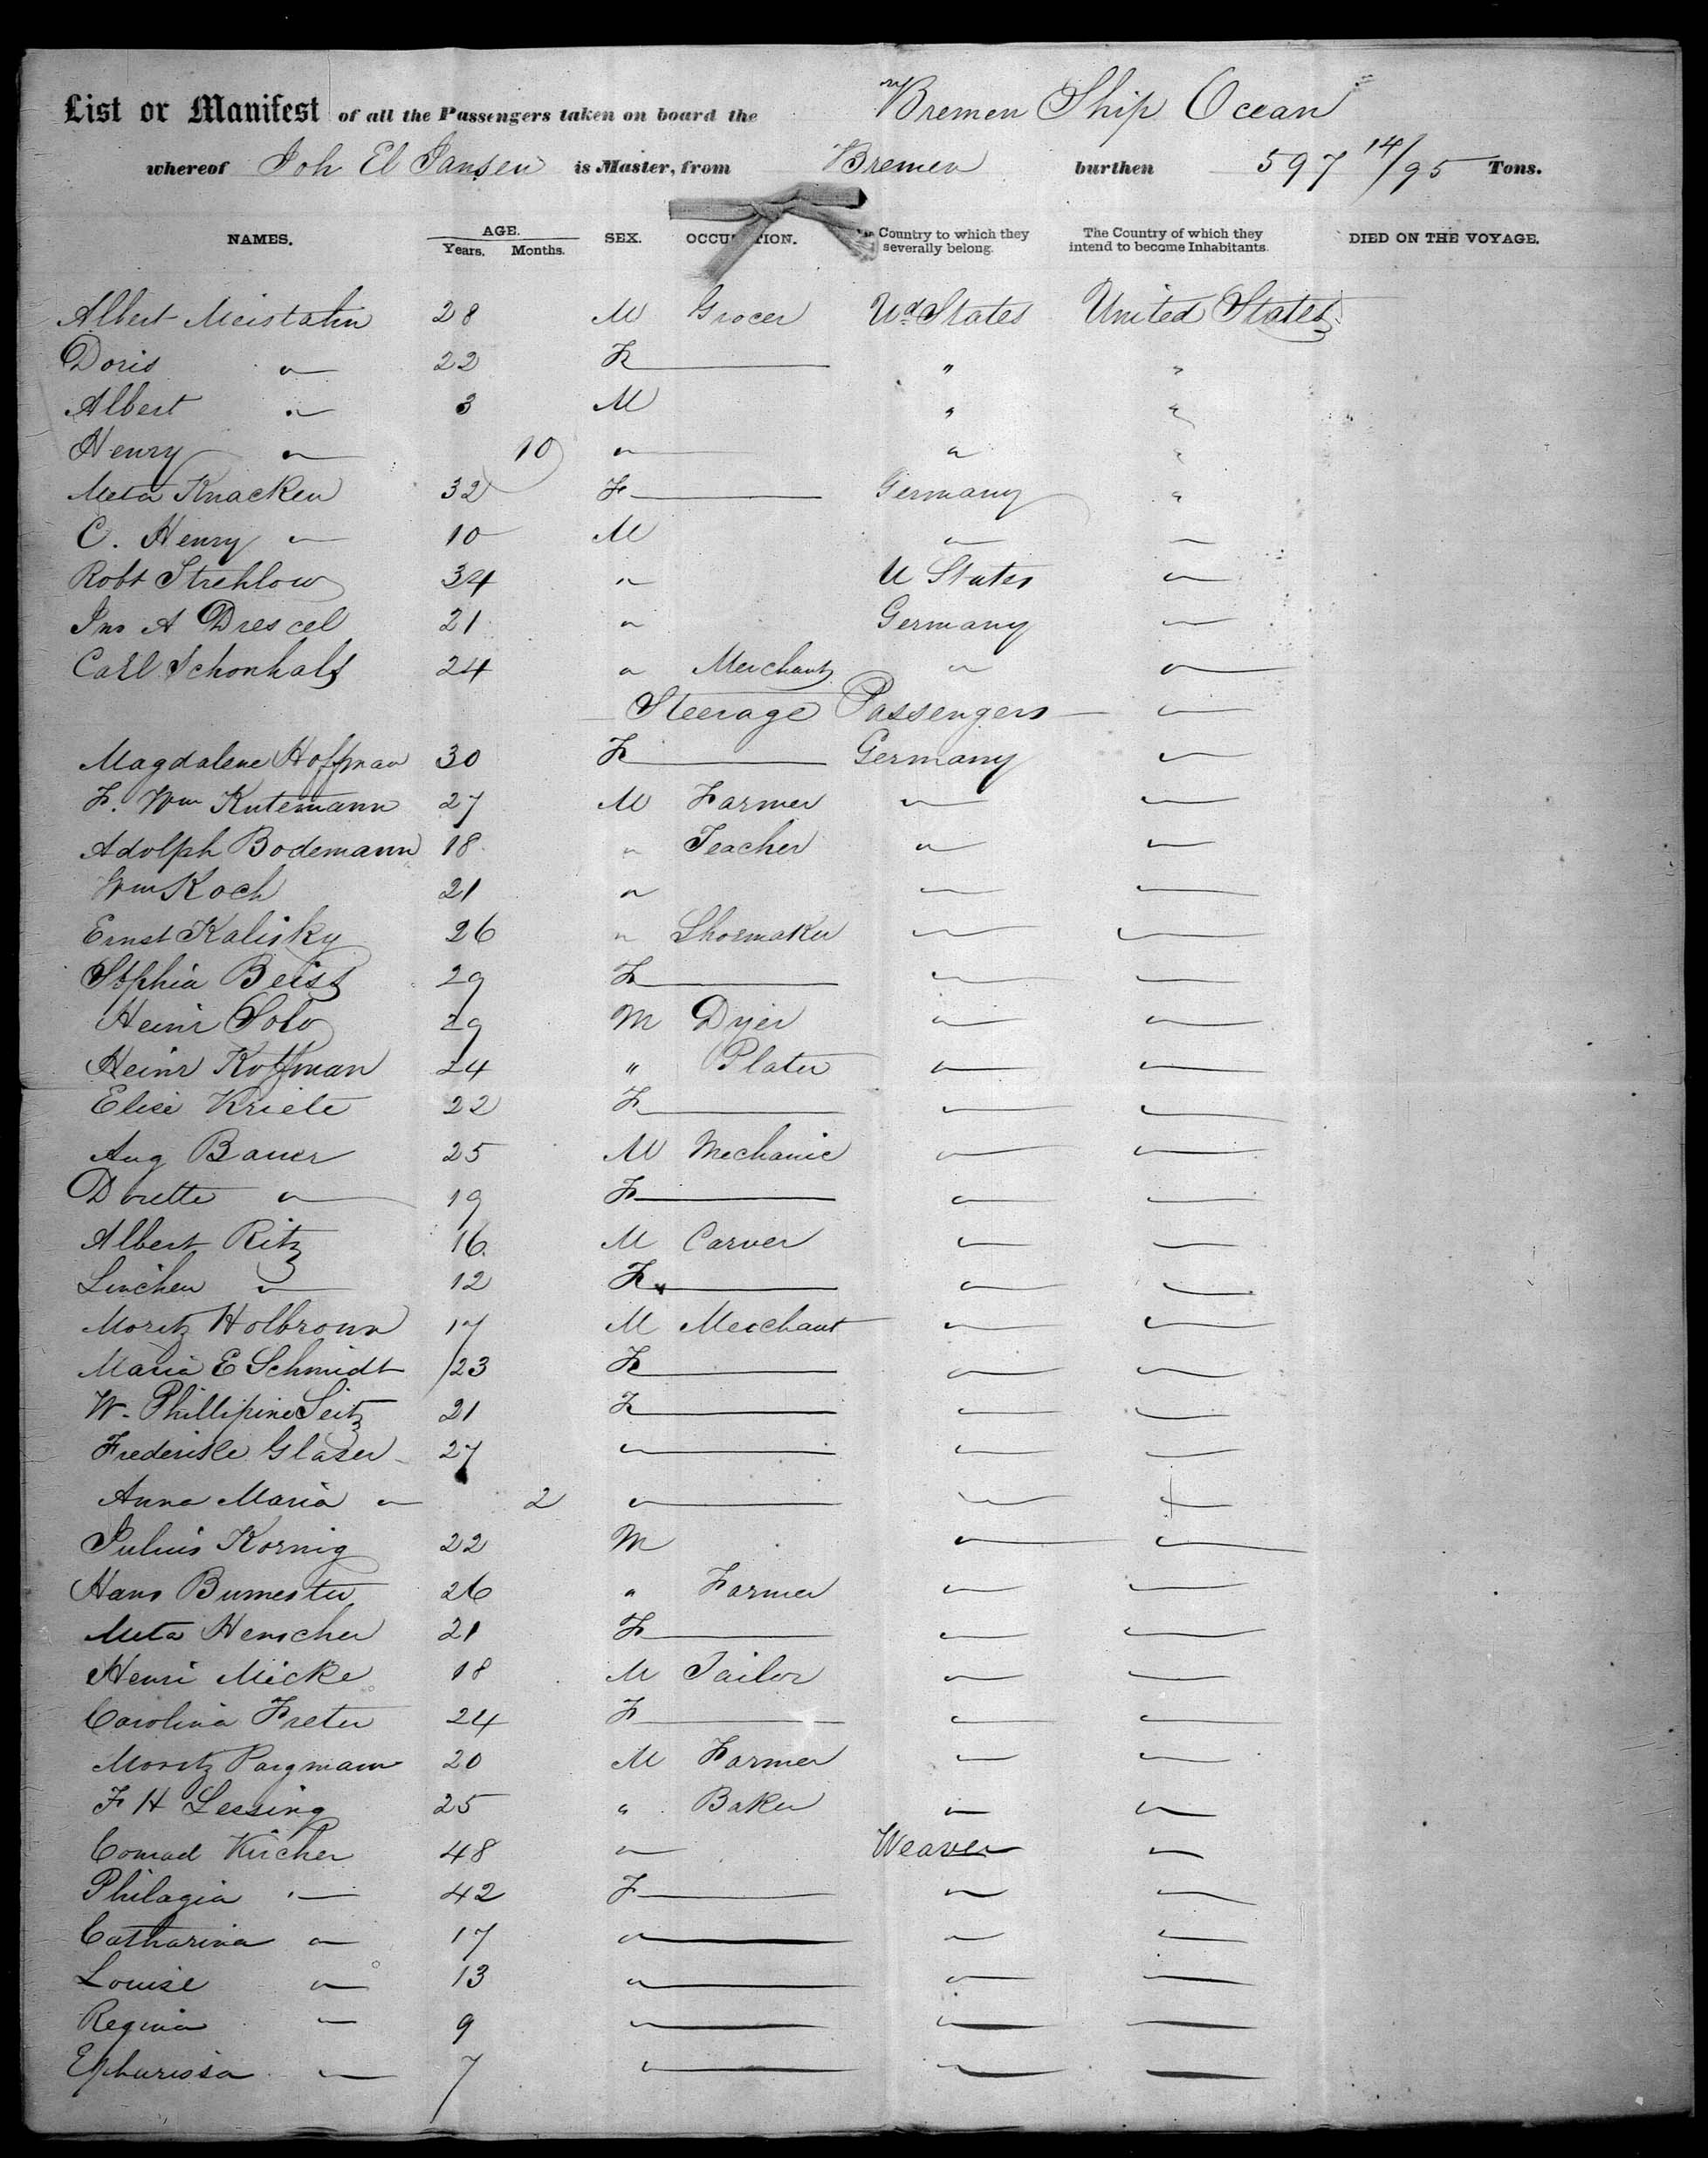 List or Manifest of all the Passengers taken on board the Bremen Ship Ocean
whereof Joh El Jansen is Master, from Bremen burthen 597 14/95 Tons.
NAMES. AGE. Years. Months. SEX. OCCUPATION. Country to which they severally belong. The Country of which they intend to become Inhabitants. DIED ON THE VOYAGE.
Albert Meistahn 28 M Grocer Ud States United States
Doris " 22 F " "
Albert " 3 M " "
Henry " 10 " " "
Meta Knacken 32 F Germany "
C. Henry " 10 M " "
Robt Strehlow 34 " U States "
Jno A Drescel 21 " Germany "
Carl Schonhals 24 " Merchant " "
Steerage Passengers "
Magdalene Hoffman 30 F Germany "
F. Wm Kutemann 27 M Farmer " "
Adolph Bodemann 18 " Teacher " "
Wm Koch 21 " " "
Ernst Kalisky 26 " Shoemaker " "
Sophia Beiss 29 F " "
Heinr Solo 29 M Dyer " "
Heinr Koffman 24 " Plater " "
Elise Kriete 22 F " "
Aug Bauer 25 M Mechanic " "
Dorette " 19 F " "
Albert Ritz 16 M Carver " "
Linchen " 12 F " "
Moritz Holbronn 17 M Merchant " "
Maria E Schmidt 23 F " "
W. Phillipine Seitz 21 F " "
Frederike Glaser 27 " " "
Anna Maria " 2 " " "
Julius Kornig 22 M " "
Hans Bumester 26 " Farmer " "
Meta Henscher 21 F " "
Henri Micke 18 M Tailor " "
Carolina Freter 24 F " "
Moritz Pargmann 20 M Farmer " "
F H Lessing 25 " Baker " "
Conrad Kircher 48 " Weaver "
Philagia " 42 F " "
Catharina " 17 " " "
Louise " 13 " " "
Regina " 9 " " "
" 7 " " "